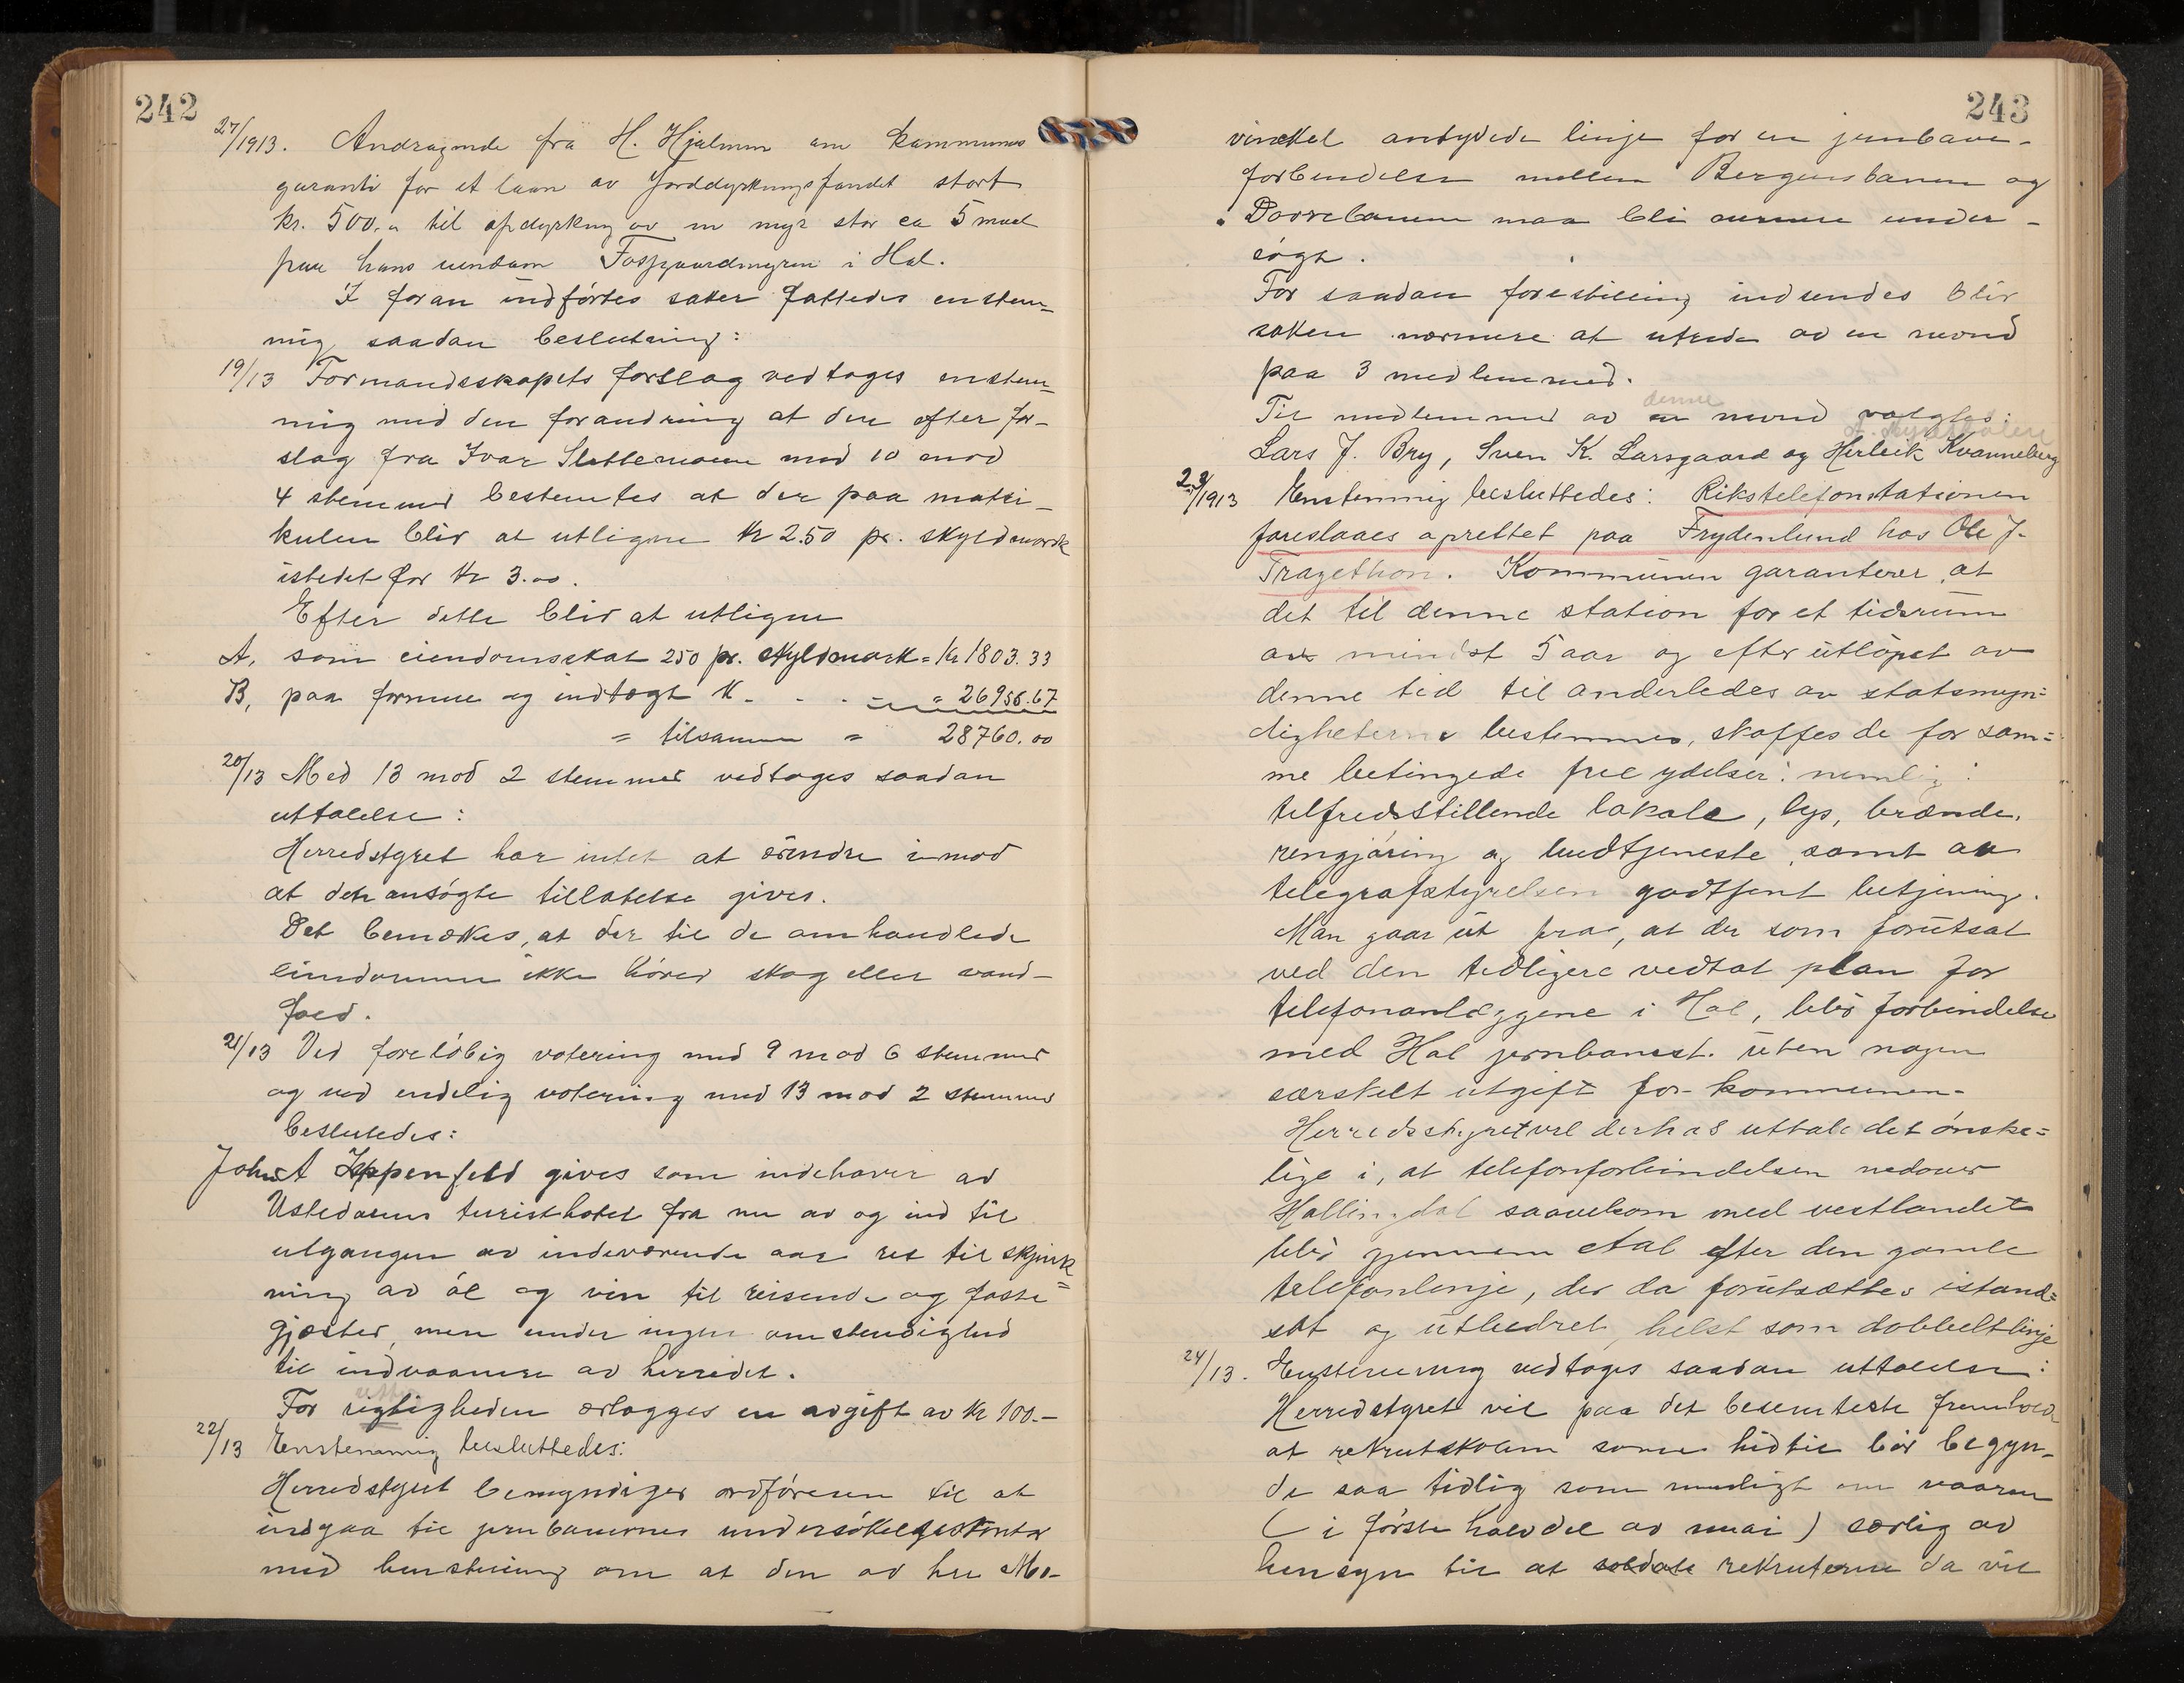 242
27/1913. Andragende fra H. Hjelmen om kommunens
garanti for et laan av Jorddyrkningsfondet stort
kr. 500.00 til opdyrkning av en myr stor ca 5 maal
paa hans eiendom Fosgaardmyren i Hol.
I foran indførtes saker fattedes enstem=
mig saadan beslutning:
19/13 Formandsskapets forslag vedtoges enstem=
mig med den forandring at den efter for-
slag fra Ivar Slettemoen med 10 mod
4 stemmer bestemtes at der paa matri-
kulen blir at utligne kr 2.50 pr. skyldmark
istedet for kr 3.00.
Efter dette blir at utligne
A, som eiendomsskat 250 pr. skyldmark = kr 1803.33
B, paa formue og indtægt kr - - - = " 26956.67
= tilsammen = 28760.00
20/13 Med 13 mod 2 stemmer vedtoges saadan
uttalelse:
Herredstyret har intet at erindre imod
at den ansøgte tillatelse gives.
Det bemerkes, at der til de omhandlede
eiendomme ikke hører skog eller vand-
fald.
21/13 Ved foreløbig votering med 9 mod 6 stemmer
og ved endelig votering med 13 mod 2 stemmer
besluttedes:
John A Ippenfeld gives som indehaver av
Ustedarens turisthotel fra nu av og ind til
utgangen av indeværende aar ret til skjenk=
ning av øl og vin til reisende og faste
gjæster, men under ingen omstendighed
til indvaanere av herredet.
retten
For rigtigheden erlægges en avgift av kr 100.-
22/13 Enstemmig besluttedes:
Herredstyret bemyndiger ordføreren til at
indgaa til jernbanernes undersøkelseskontor
med henstilling om at den av hr Mo-
243
vinckel antydede linje for en jernbane-
forbindelse mellem Bergensbanen og
Dovrebanen maa bli nærmere under-
søgt.
Før saadan forestilling indsendes blir
saken nærmere at utrede av en nevnd
paa 3 medlemmer.
denne
Til medlemmer av en nevnd valgtes:
Lars J. Bry, Sven K. Larsgaard og Herleik Kvanneberg
23/1913 Enstemmig besluttedes: Rikstelefonstationen
foreslaaes oprettet paa Frydenlund hos Ole J.
Tragethon. Kommunen garanterer, at
det til denne station for et tidsrum
av mindst 5 aar og efter utløpet av
denne tid til anderledes av statsmyn=
digheterne bestemmes, skaffes de for sam=
me betingede frie ydelser: nemlig:
tilfredsstillende lokale, lys, brænde,
rengjøring og budtjeneste, samt av
telegrafstyrelsen godtjent betjening.
Man gaar ut fra, at der som forutsat
ved den tidligere vedtat plan for
telefonanlæggene i Hol, blir forbindelse
med Hol jernbanest. uten nogen
særskilt utgift for kommunen.
Herredsstyret vil derhos uttale det ønske=
lige i, at telefonforbindelsen nedover
Hallingdal saavelsom med vestlandet
blir gjennem Aal efter den gamle
telefonlinje, der da forutsættes istand=
sat og utbedret, helst som dobbeltlinje
24/13. Enstemmig vedtoges saadan uttalelse:
Herredstyret vil paa det bestemteste fremholde
at rekrutskolen som hidtil bør begyn-
de saa tidlig som muligt om vaaren
(i første halvdel av mai) særlig av
hensyn til at soldate rekruterne da vil